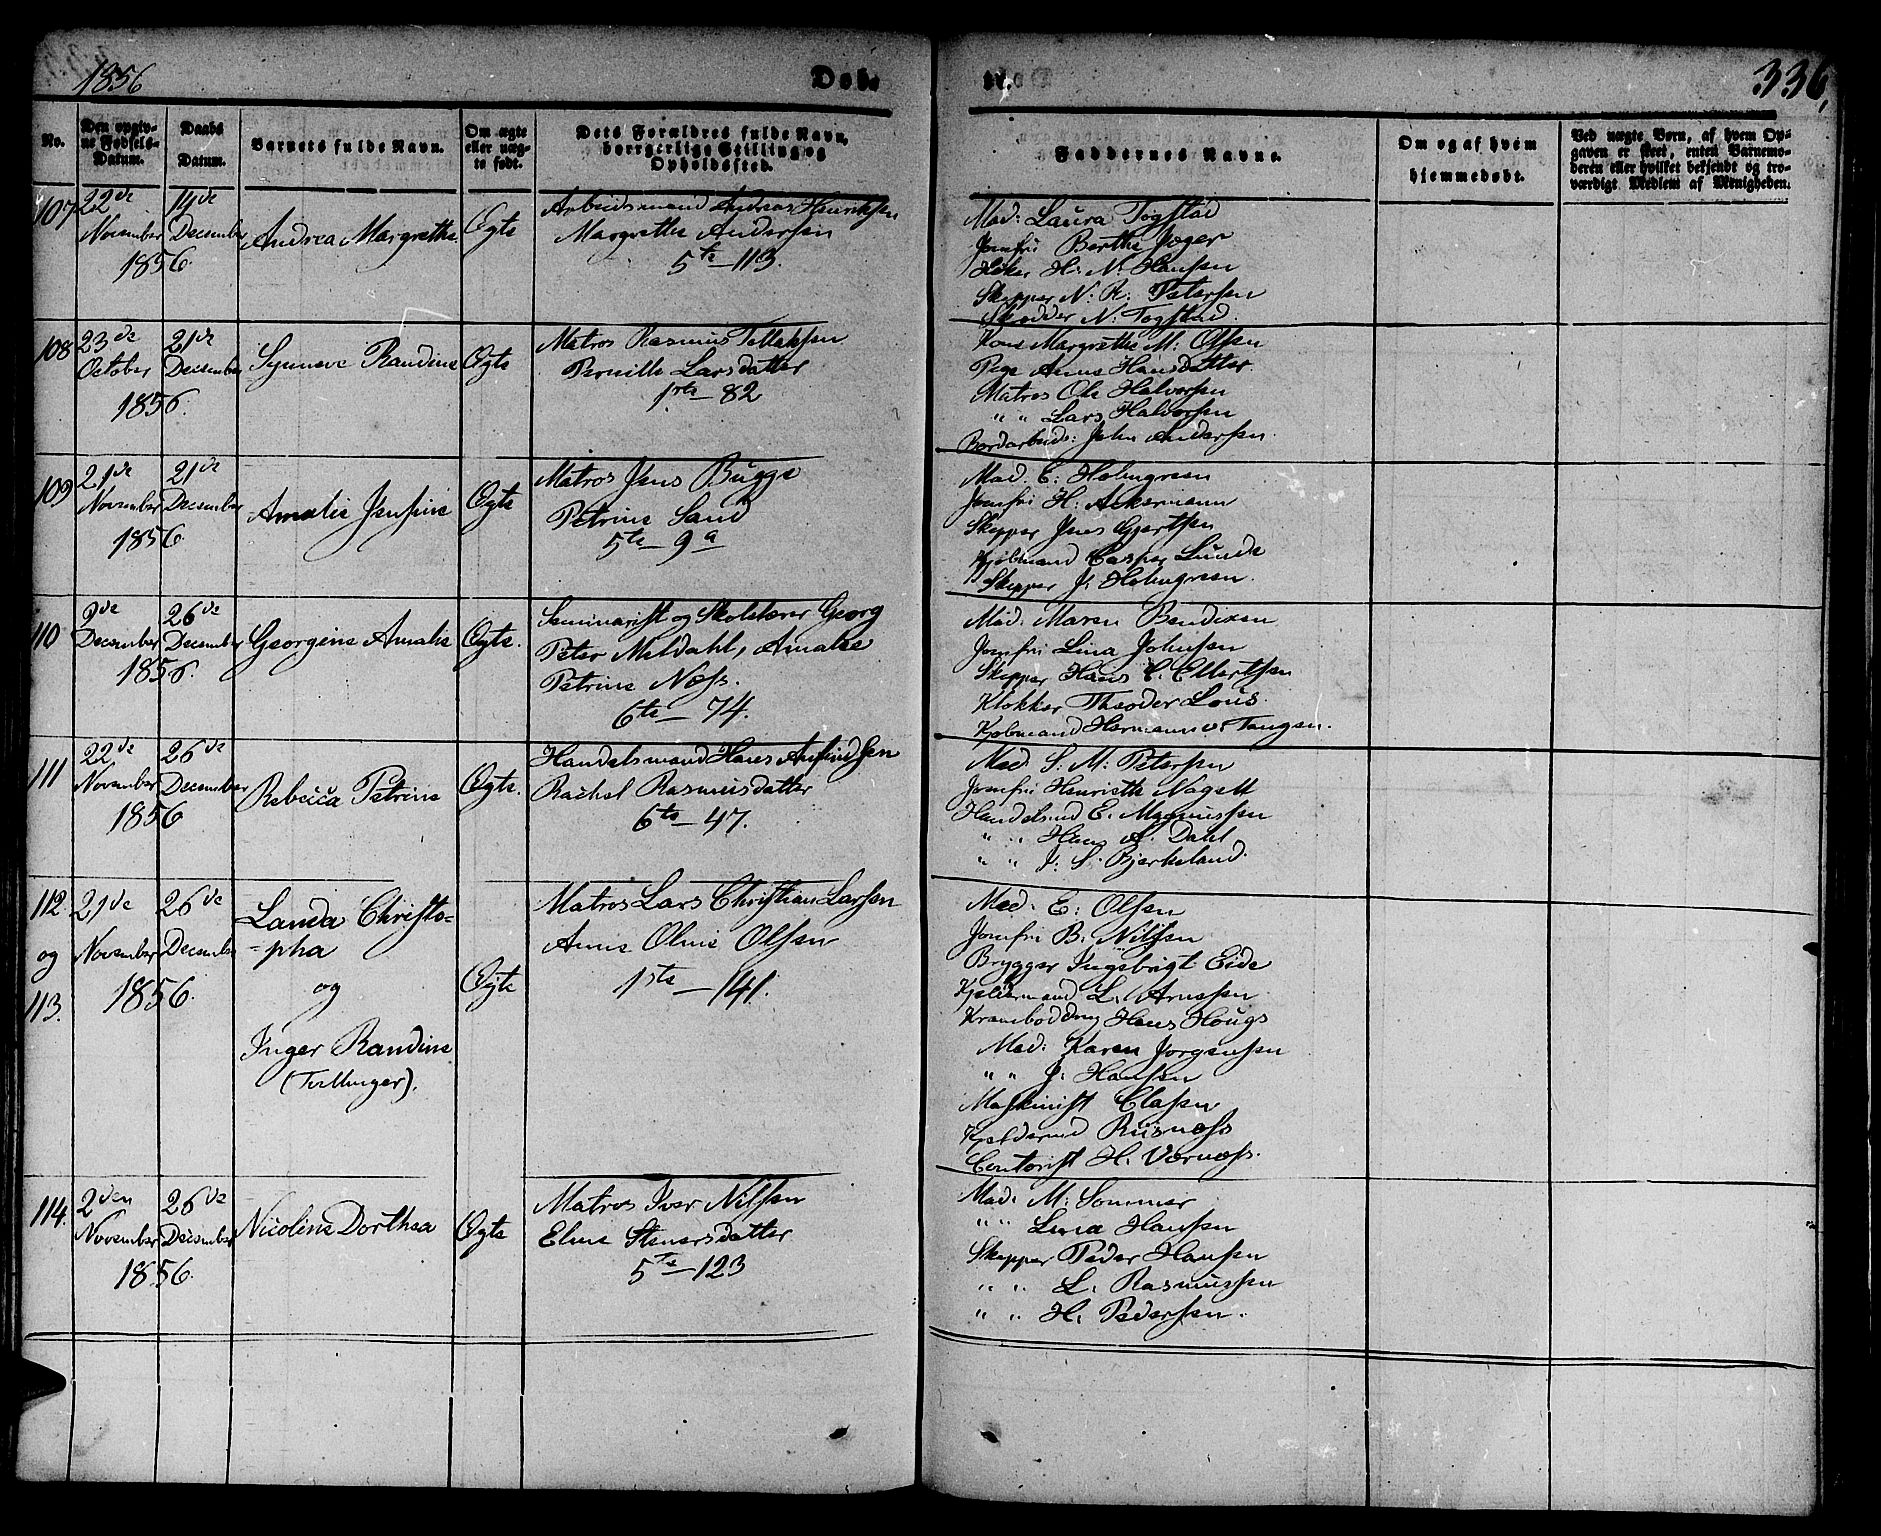 1856
Døb-
te.
336,
No.
Den opgiv-
ne Fødsels-
Datum.
Daabs
Datum.
Barnets fulde Navn.
Om ægte
eller uæg-
te født.
Dets Forældres fulde Navn,
borgerlige Stilling og
Opholdssted.
Faddernes Navne.
Om og af hvem
hjemmedøbt.
Ved uægte Børn, af hvem Op-
gaven er skeet, enten Barnemo-
deren eller hvilket bekjendt og tro-
værdigt Medlem af Menigheden.
107 22de November 1856
14de December
Andrea Margrethe
Ægte
Arbeidsmand Andreas Henriksen
Margrethe Andersen
5te—113.
Mad: Laura Togstad
Jomfru Berthe Jæger
Høker H. N. Hansen
Skipper N: R: Petersen
Skrædder N. Togstad.
108 23de October 1856.
21de December
Synneve Randine
Ægte
Matros Rasmus Tollaksen
Pernille Larsdatter
1ste—82
Kone Margrethe M: Olsen
Pige Anne Hansdatter
Matros Ole Halvorsen
" " Lars Halvorsen
Bordarbeid: John Andersen.
109 21de November 1856
21de December
Amalie Jensine
Ægte
Matros Jens Bugge
Petrine Sand
5te—9a
Mad. E: Holmgreen
Jomfru H: Ackermann
Skipper Jens Gjertsen
Kjøbmand Casper Lunde
Skipper J. Holmgreen.
110 9de December 1856.
26de December
Georgine Amalie
Ægte.
Seminarist og Skolelærer Georg
Peter Meldahl, Amalie
Petrine Næss.
6te—74.
Mad. Maren Bendixen
Jomfru Lina Johnsen
Skipper Hans C. Ellertsen
Klokker Theodor Lous.
Kjøbmand Hermann v: Tangen.
111 22de November 1856
26de December
Rebecca Petrine
Ægte.
Handelsmand Hans Anfindsen
Rachel Rasmusdatter
6te—47.
Mad S. M. Petersen
Jomfru Henriette Nagell
Handelsmd E. Magnussen
" " Hans A. Dahl
" " J. S. Bjerkeland.
112 og 113. 21de November 1856.
26de December
Landa Christo-
=pha
og
Inger Randine
(Tvillinger).
Ægte
Matros Lars Christian Larsen
Anne Oline Olsen
1ste—141.
Mad. E: Olsen
Jomfru B. Nilsen
Brygger Ingebrigt Eide
Kjeldermand L. Arnesen
Krambod Dng Hans Hougs
Mad: Karen Jørgensen
" " J. Hansen
Maskinist Clasen
Kjeldermd Riisnæss
Contorist H. Værnæss.
114. 2den November 1856.
26de December
Nicoline Dorthea
Ægte
Matros Iver Nilsen
Eline Stenersdatter
5te—123
Mad. M: Sommer
" " Lina Hansen
Skipper Peder Hansen
" " L. Rasmussen
" " H. Pedersen.